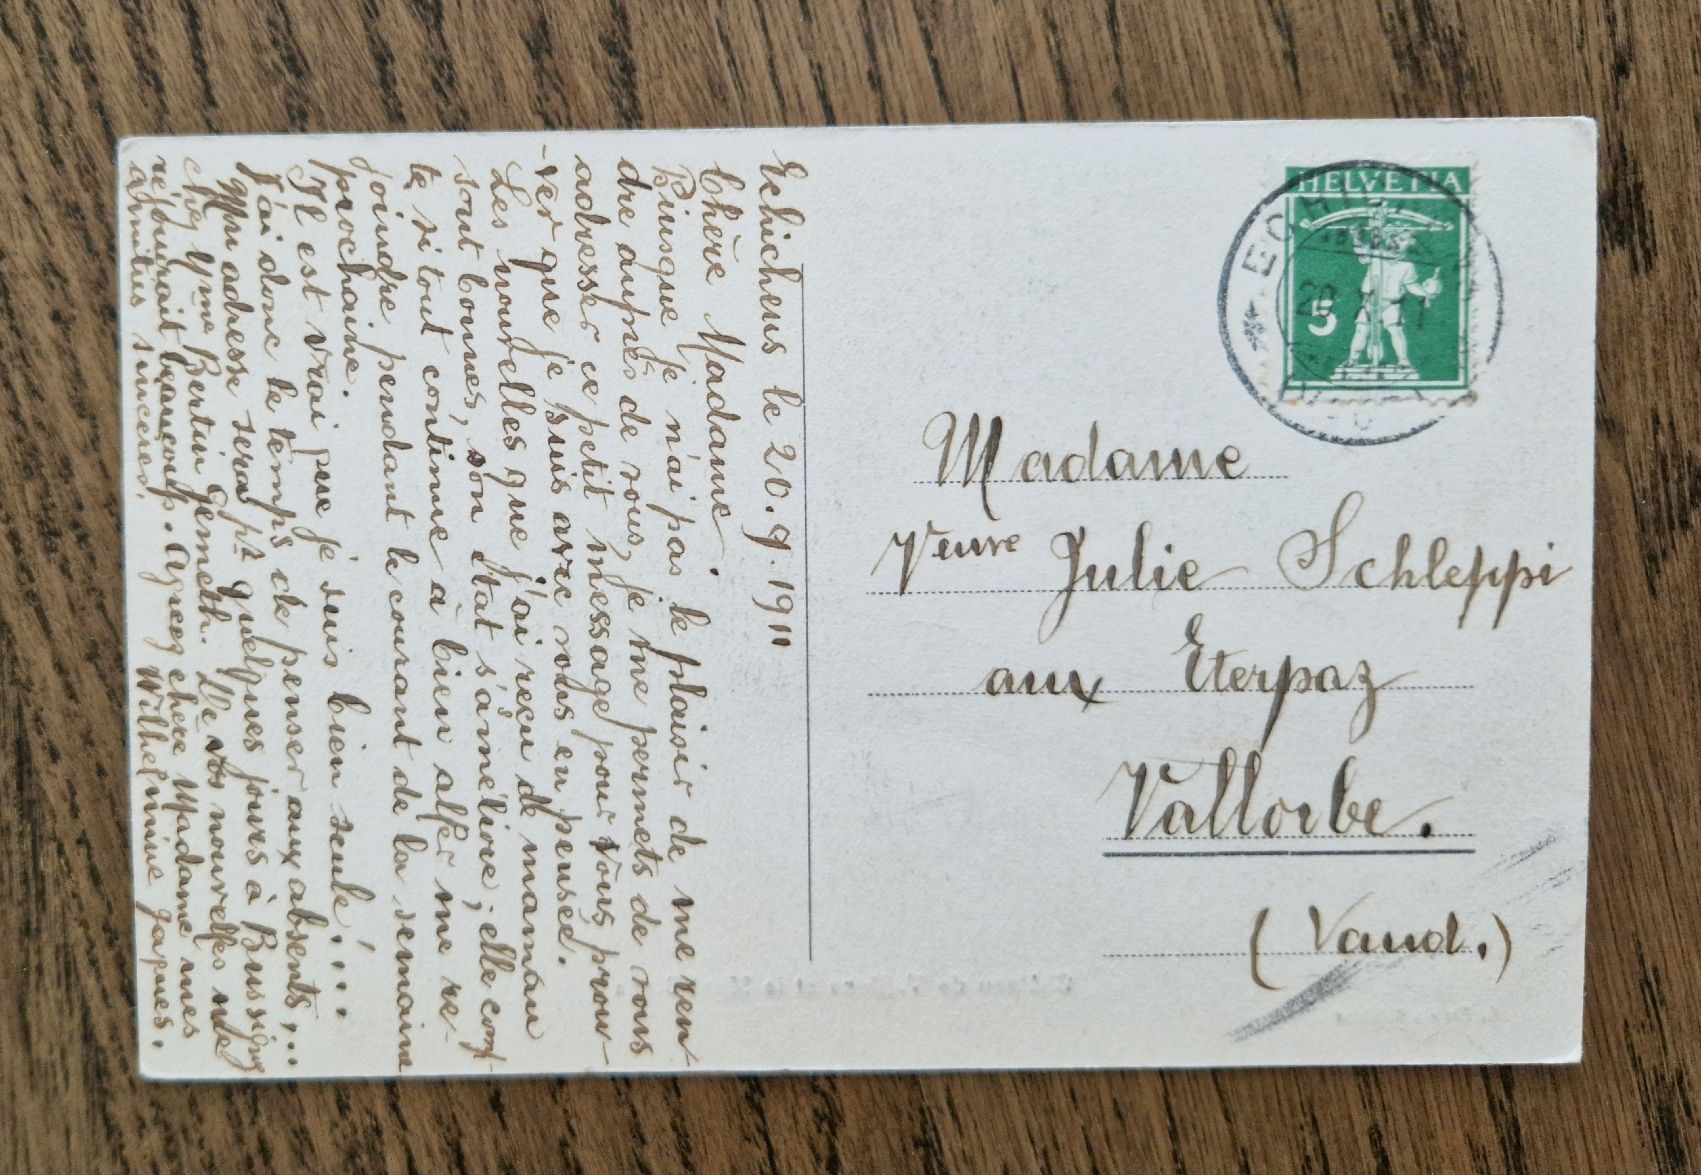 Echichens le 20.9.1911
Chère Madame.
Puisque je n'ai pas le plaisir de me ren-
dre auprès de vous, je me permets de vous
adresser ce petit message pour vous prou-
-ver que je suis avec vous en pensée.
Les nouvelles que j'ai reçu de maman
sont bonnes, son état s'améliore; elle comp-
te si tout continue à bien aller me re-
joindre pendant le courant de la semaine
prochaine.
Il est vrai que je suis bien seule!...
J'ai donc le temps de penser aux absents,...
Mon adresse sera pr quelques jours à Bussigny
chez Mme Bertin De vos nouvelles me
réjouirait beaucoup. Agréez chère Madame mes
amitiés sincères. Wilhelmine Jaques.
HELVETIA
5
Madame
Veuve Julie Schleppi
aux Eterpaz
Vallorbe.
(Vaud.)